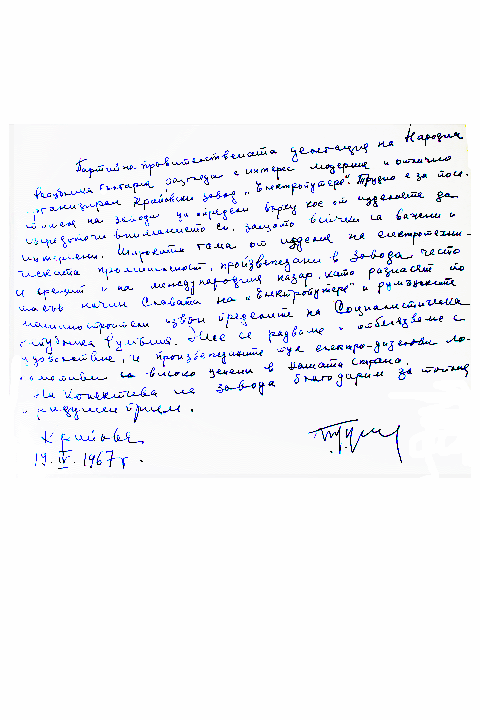 Партийно-правителствената делегация на Народна
Република България разгледа с интерес модерния и отлично
организиран Крайовски завод "Електропутере". Трудно е за посе-
тителя на завода да определи върху кое от изделията да
съсредоточи вниманието си, защото всички са важни и
интересни. Широката гама от изделия на електротехни-
ческата промишленост, произвеждани в завода често
се срещат и на международния пазар, като разнасят по
такъв начин славата на "Електропутере" и румънските
машиностроители извън пределите на Социалистическа
Република Румъния. Ние се радваме и отбелязваме с
удоволствие, че произвежданите тук електро-дизелови ло-
комотиви са високо ценени в нашата страна.
На колектива на завода благодарим за топлия
и радушен прием.
Крайова
19.IV.1967 г.